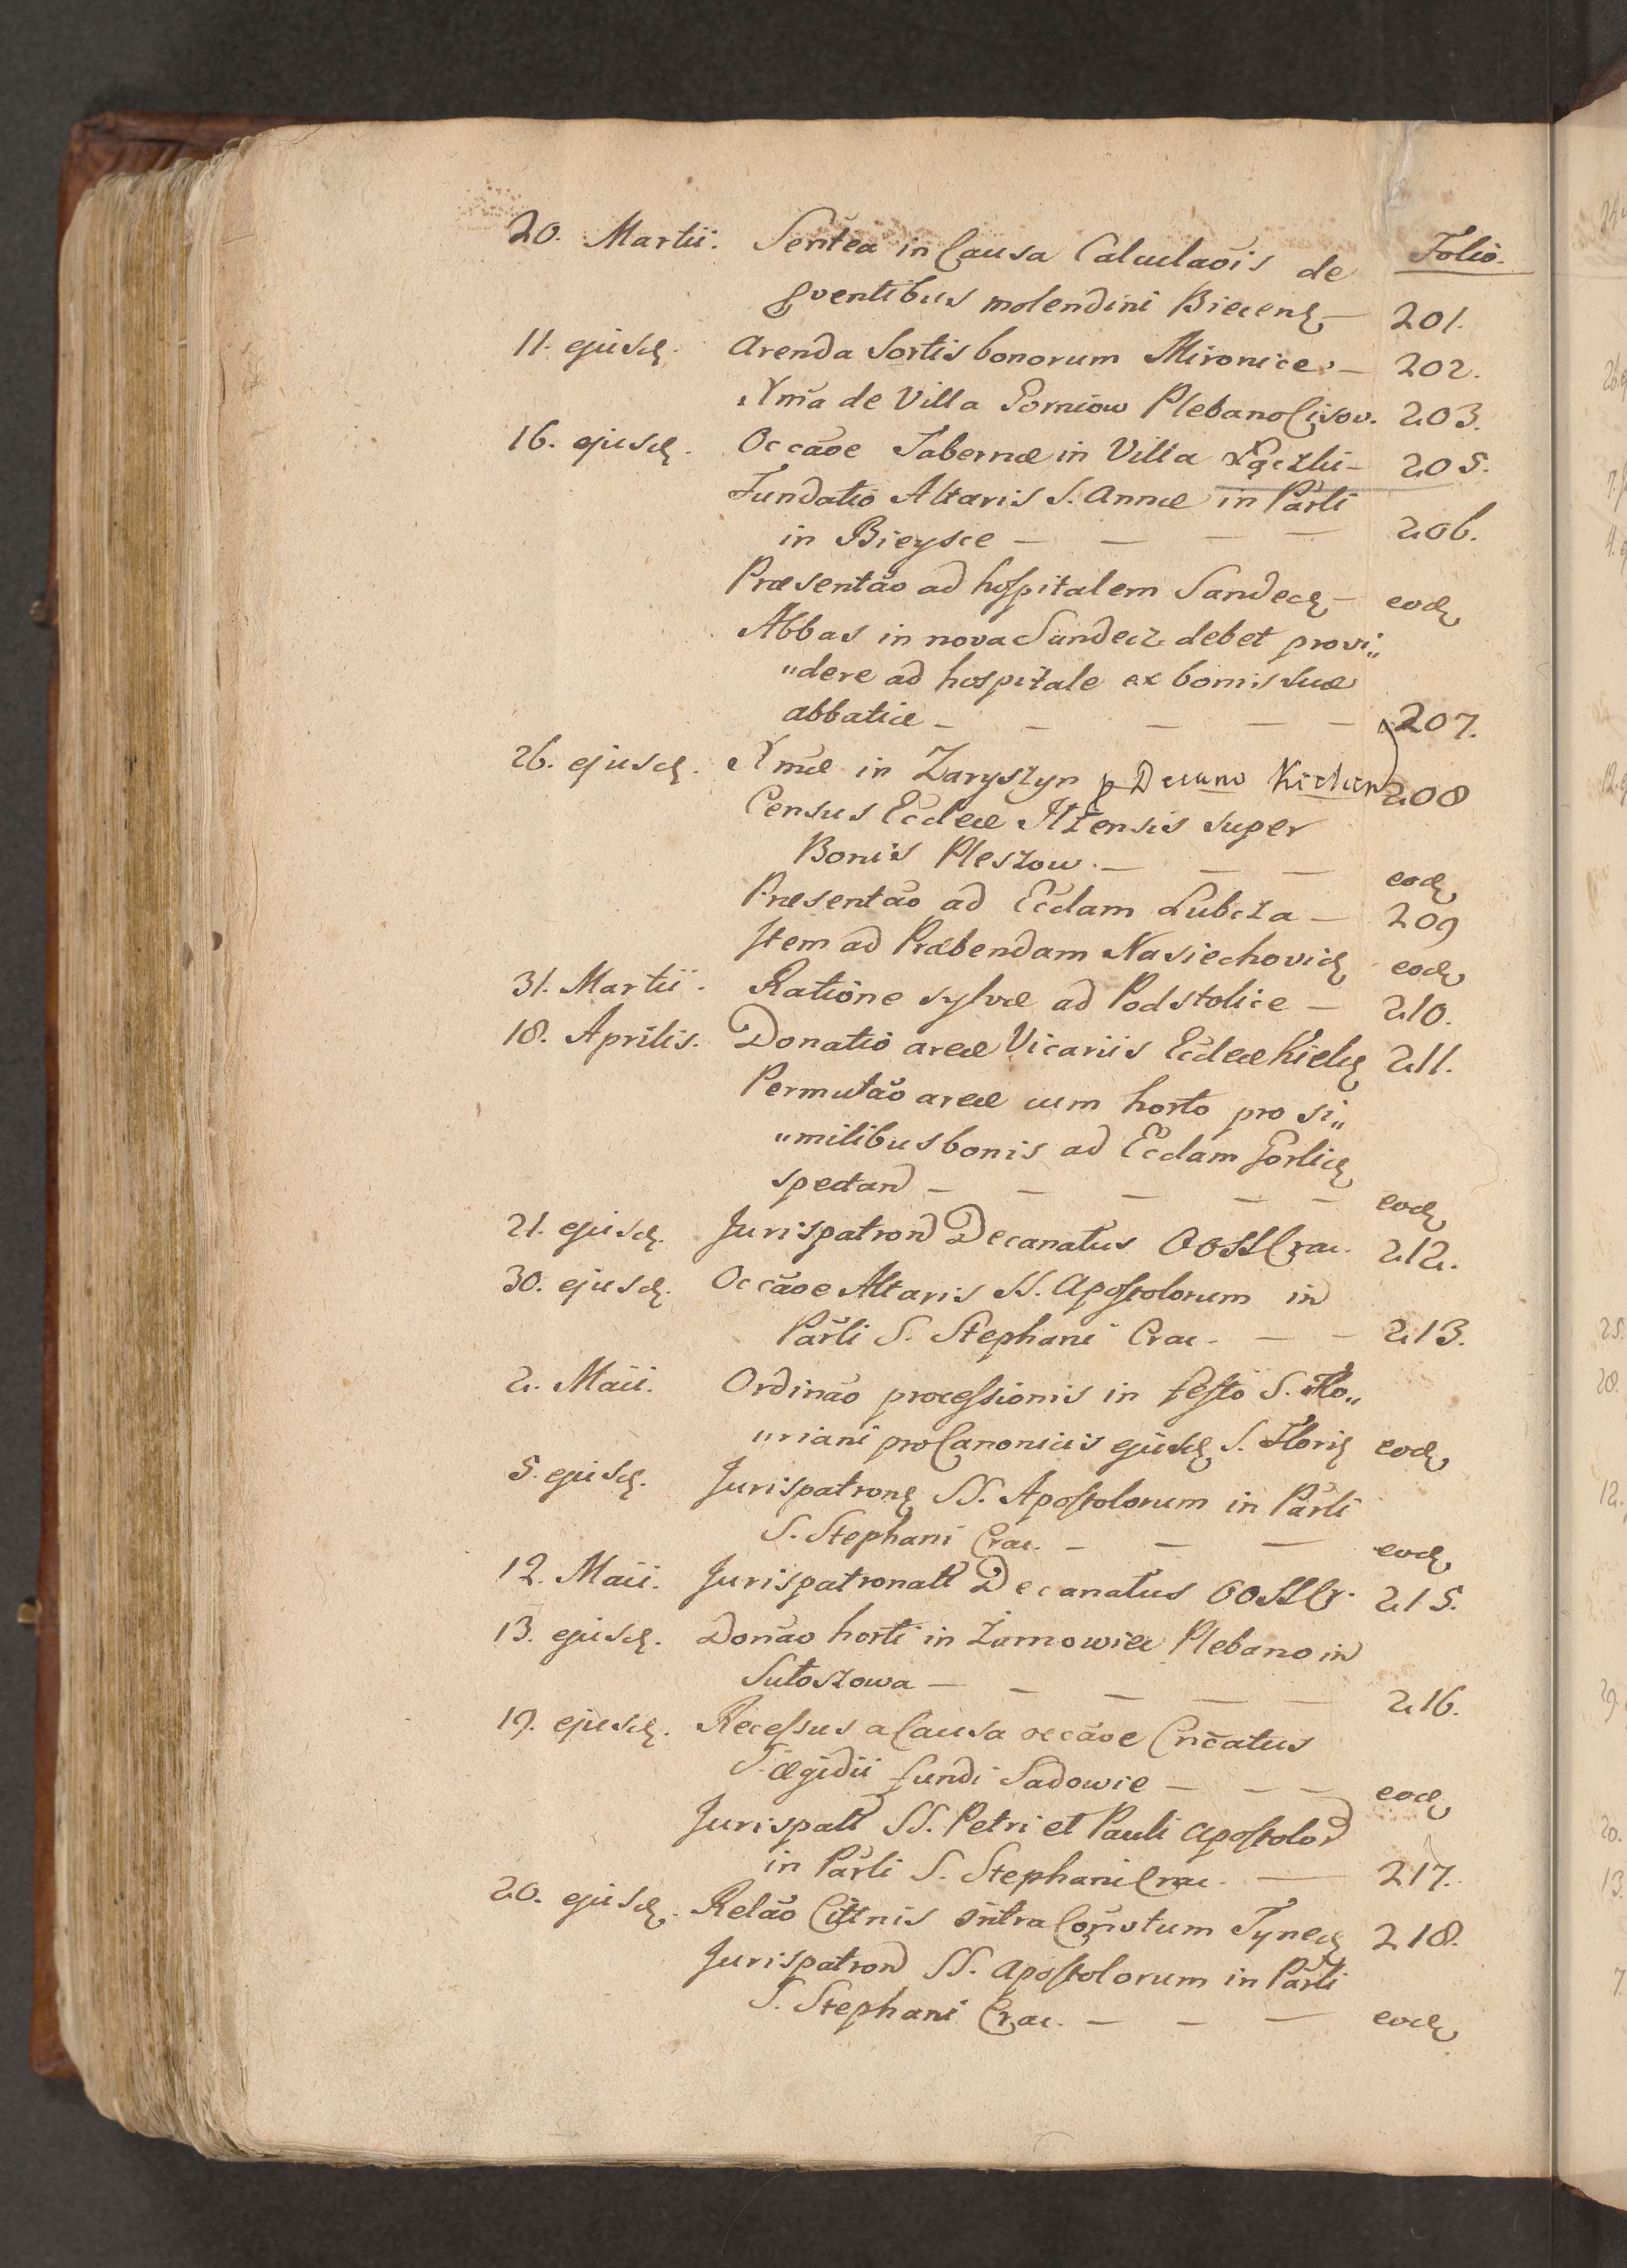 Folio.
20. Martii. Sentea in Causa Calculaõis de
proventibus molendini Biecens — 201.
11. ejusd. Arenda Sortis bonorum Mironice — 202.
Xma de Villa Gorniow Plebano Cisov. 203.
16. ejusd. Occãoe Tabernæ in Villa Łączki — 205.
Fundatio Altaris S. Annæ in Parli
in Bieysce — — — — 206.
Præsentão ad hospitalem Sandec — eod
Abbas in nova Sandecz debet provi„
„dere ad hospitale ex bonis suæ
abbatiæ — — — — — 207.
26. ejusd. Xmæ in Zaryszyn p Decano Kielcen 208
Census Ecclæ Ilzensis super
Bonis Pleszow. — — — eod
Præsentão ad Ecclam Lubcza — 209
Item ad Præbendam Nasiechovic eod
31. Martii. Ratione sylvæ ad Podstolice — 210.
18. Aprilis. Donatio areæ Vicariis Ecclæ Kielc 211.
Permutão areæ cum horto pro si„
„milibus bonis ad Ecclam Gorlic
spectand — — — — — eod
21. ejusd. Jurispatron Decanatus OOSS Crac. 212.
30. ejusd. Occãoe Altaris SS. Apostolorum in
Parli S. Stephani Crac. — — 213.
2. Maii. Ordinão processionis in festo S. Flo„
„riani pro Canonicis ejusd S. Flori eod
5. ejusd. Jurispatron SS. Apostolorum in Parli
S. Stephani Crac. — — — eod
12. Maii. Jurispatronatt Decanatus OOSS Cr. 215.
13. ejusd. Donão horti in Żarnowiec Plebano in
Sułoszowa — — — — — 216.
19. ejusd. Recessus a Causa occãoe Cricatus
S. Ægidii fundi Sadowie — — — eod
Jurispatt SS. Petri et Pauli Apostolor
in Parli S. Stephani Crac. — 217.
20. ejusd. Relão Cittnis intra Convtum Tynec 218.
Jurispatron SS. Apostolorum in Parli
S. Stephani Crac. — — — eod